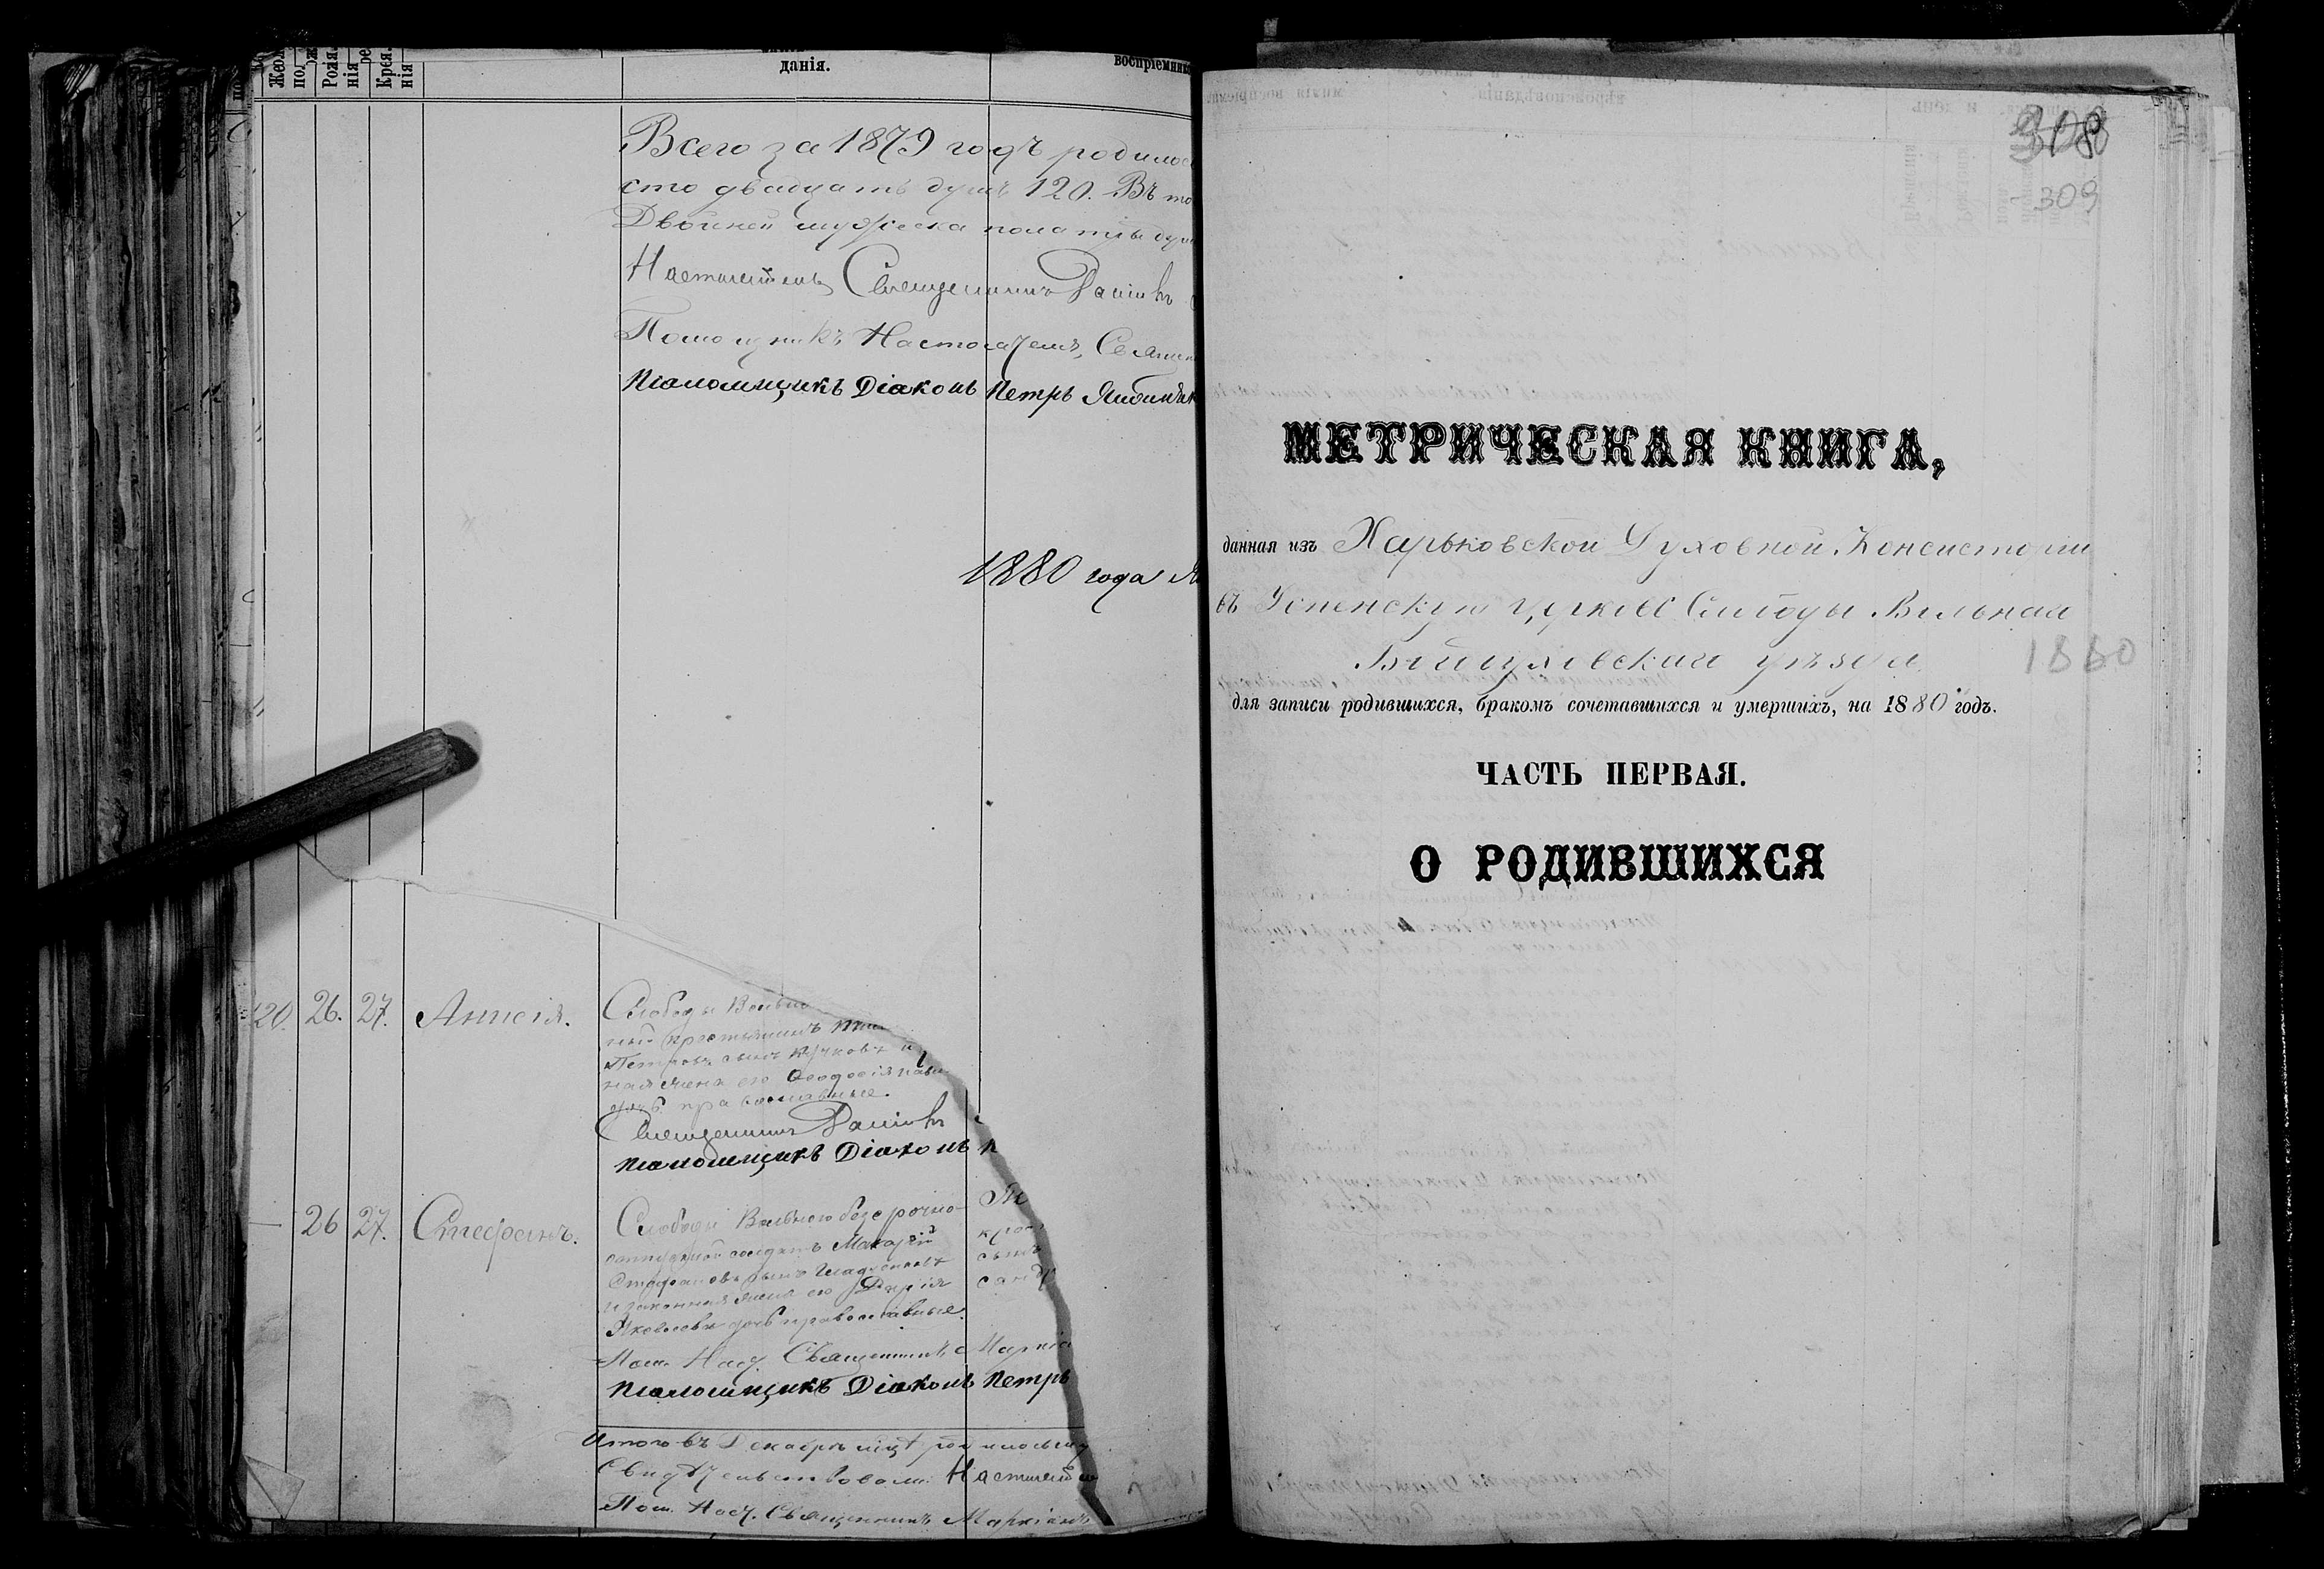 Жео
по
Рожд
нія
Крещ
нія
данія.
воспріемник
Всего за 1879 годъ родилос
сто двадцать душъ 120. Въ то
Двойней мужеска пола три душ
Настоятель Священникъ Даніилъ
Помощникъ Настоятеля, Священ
Псаломщикъ Діаконъ Петръ
1880 года
120. 26. 27. Анисія.
Слободы Вольно
крестьянинъ
Петровъ сынъ и
ная жена его Ѳеодосія Павл
дочь православные.
Священникъ Даніилъ
Псаломщикъ Діаконъ П
26 27. Стефанъ.
Слободы Вольного безсрочно-
отпускной солдатъ Макарій
Стефановъ сынъ
и законная жена его Дарія
Яковлева дочь православные.
Пом. Наст. Священникъ Маркіа
Псаломщикъ Діаконъ Петръ
Итого въ Декабрѣ мцѣ родилось
Свидѣтельствовали: Настоятель
Пом. Наст. Священникъ Маркіанъ
308
309
МЕТРИЧЕСКАЯ КНИГА,
данная изъ Харьковской Духовной Консисторіи
въ Успенскую церковь Слободы Вольная
Богодуховскаго уѣзда
1880
для записи родившихся, бракомъ сочетавшихся и умершихъ, на 1880 годъ.
ЧАСТЬ ПЕРВАЯ.
О РОДИВШИХСЯ